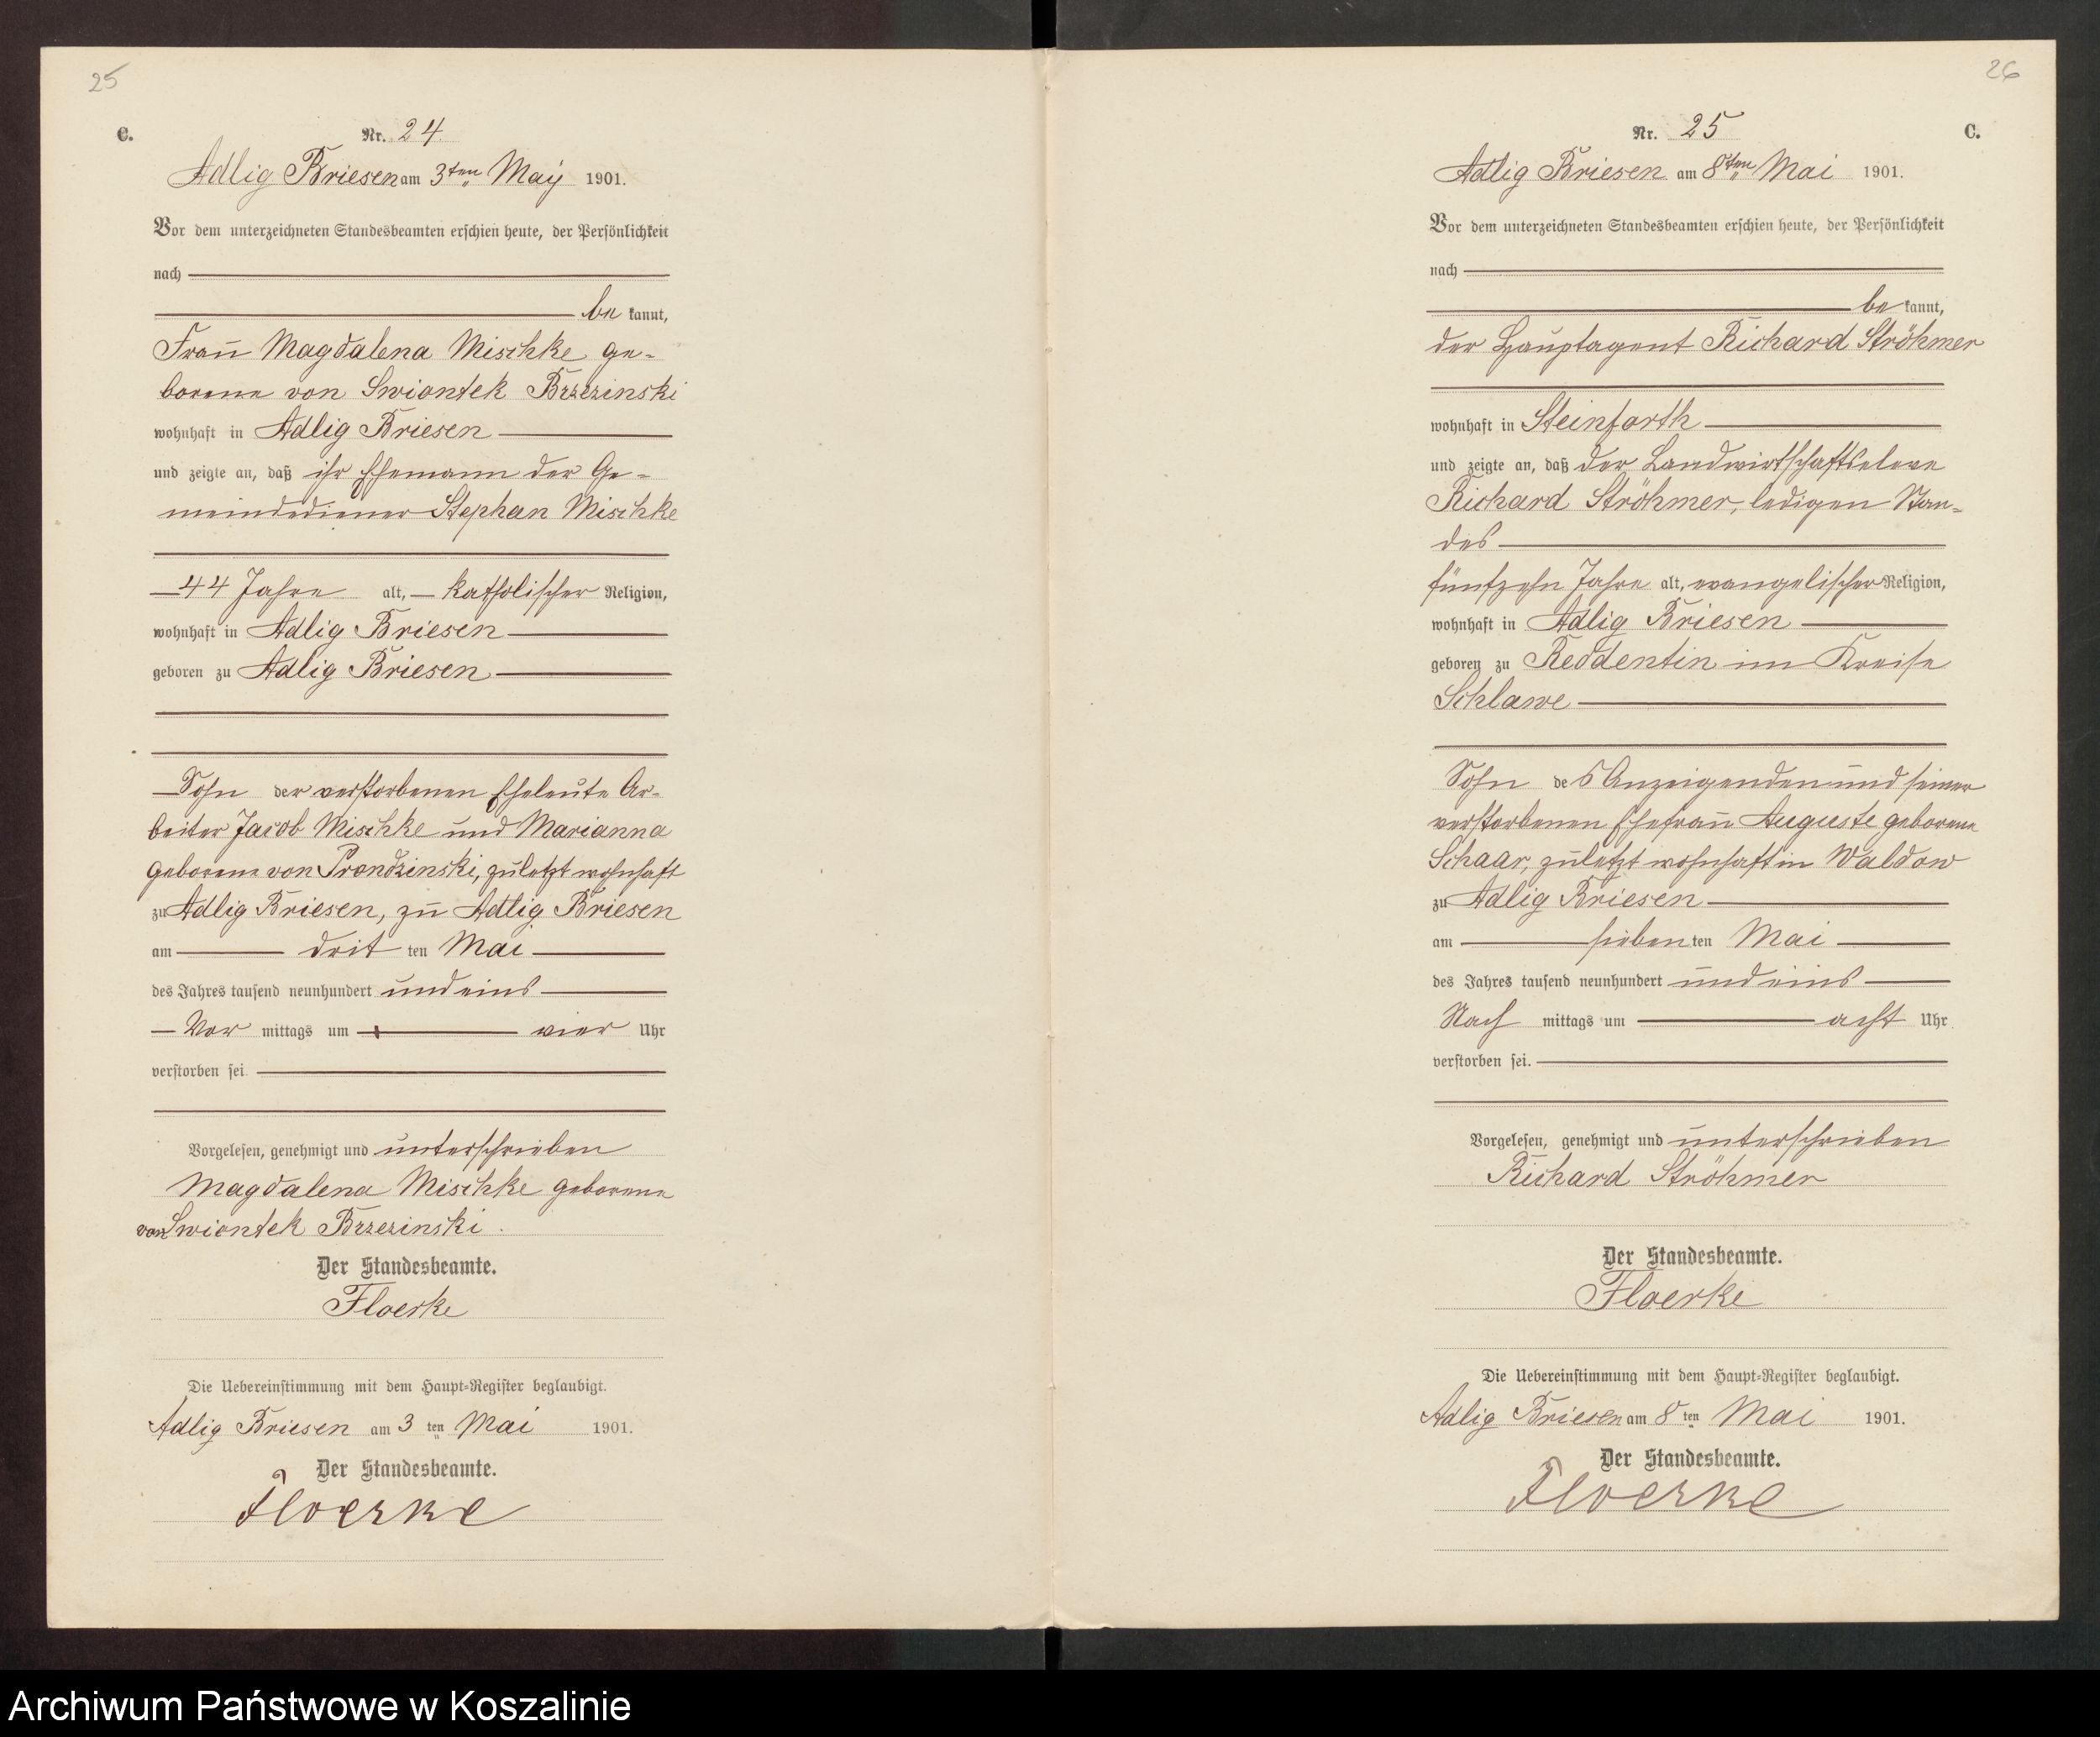 25
C.
Nr. 24.
Adlig Briesen am 3ten Maÿ 1901.
Vor dem unterzeichneten Standesbeamten erschien heute, der Persönlichkeit
nach
be kannt,
Frau Magdalena Mischke ge-
borene von Swiontek Brzezinski
wohnhaft in Adlig Briesen
und zeigte an, daß ihr Ehemann der Ge-
meindediener Stephan Mischke
44 Jahre alt, katholischer Religion,
wohnhaft in Adlig Briesen
geboren zu Adlig Briesen
Sohn der verstorbenen Eheleute Ar-
beiter Jacob Mischke und Marianna
geborene von Prondzinski, zuletzt wohnhaft
zu Adlig Briesen, zu Adlig Briesen
am drit ten Mai
des Jahres tausend neunhundert und eins
Vor mittags um vier Uhr
verstorben sei.
Vorgelesen, genehmigt und unterschrieben
Magdalena Mischke geborene
von Swiontek Brzezinski.
Der Standesbeamte.
Floerke
Die Uebereinstimmung mit dem Haupt-Register beglaubigt.
Adlig Briesen am 3 ten Mai 1901.
Der Standesbeamte.
Floerke
26
Nr. 25
C.
Adlig Briesen am 8ten Mai 1901.
Vor dem unterzeichneten Standesbeamten erschien heute, der Persönlichkeit
nach
be kannt,
der Hauptagent Richard Ströhmer
wohnhaft in Steinforth
und zeigte an, daß der Landwirtschaftseleve
Richard Ströhmer, ledigen Stan-
des
fünfzehn Jahre alt, evangelischer Religion,
wohnhaft in Adlig Briesen
geboren zu Reddentin im Kreise
Schlawe
Sohn des Anzeigenden und seiner
verstorbenen Ehefrau Auguste geborene
Schaar, zuletzt wohnhaft in Waldow
zu Adlig Briesen
am sieben ten Mai
des Jahres tausend neunhundert und eins
Nach mittags um acht Uhr
verstorben sei.
Vorgelesen, genehmigt und unterschrieben
Richard Ströhmer
Der Standesbeamte.
Floerke
Die Uebereinstimmung mit dem Haupt-Register beglaubigt.
Adlig Briesen am 8 ten Mai 1901.
Der Standesbeamte.
Floerke
Archiwum Państwowe w Koszalinie